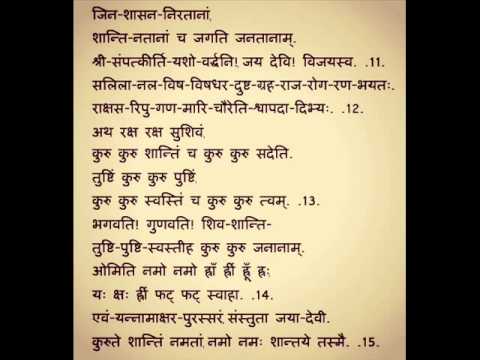 जिन-शासन-निरतानां,
शान्ति-नतानां च जगति जनतानाम्.
श्री-संपत्कीर्ति-यशो-वर्द्धनि! जय देवि! विजयस्व. .11.
सलिला-नल-विष-विषधर-दुष्ट-ग्रह-राज-रोग-रण-भयतः.
राक्षस-रिपु-गण-मारि-चौरेति-श्वापदा-दिभ्यः. .12.
अथ रक्ष रक्ष सुशिवं,
कुरु कुरु शान्तिं च कुरु कुरु सदेति.
तुष्टिं कुरु कुरु पुष्टिं,
कुरु कुरु स्वस्तिं च कुरु कुरु त्वम्. .13.
भगवति! गुणवति! शिव-शान्ति-
तुष्टि-पुष्टि-स्वस्तीह कुरु कुरु जनानाम्.
ओमिति नमो नमो ह्राँ ह्रीं ह्रूँ ह्रः
यः क्षः ह्रीं फट् फट् स्वाहा. .14.
एवं-यन्नामाक्षर-पुरस्सरं, संस्तुता जया-देवी.
कुरुते शान्तिं नमतां, नमो नमः शान्तये तस्मै. .15.